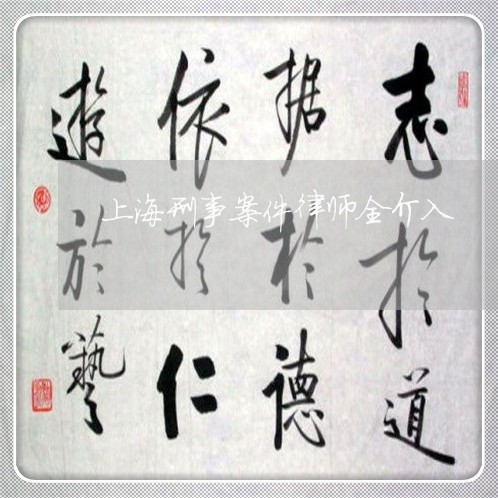 志扵道
据於德
依扵仁
遊於藝
上海刑事案件律师金介入